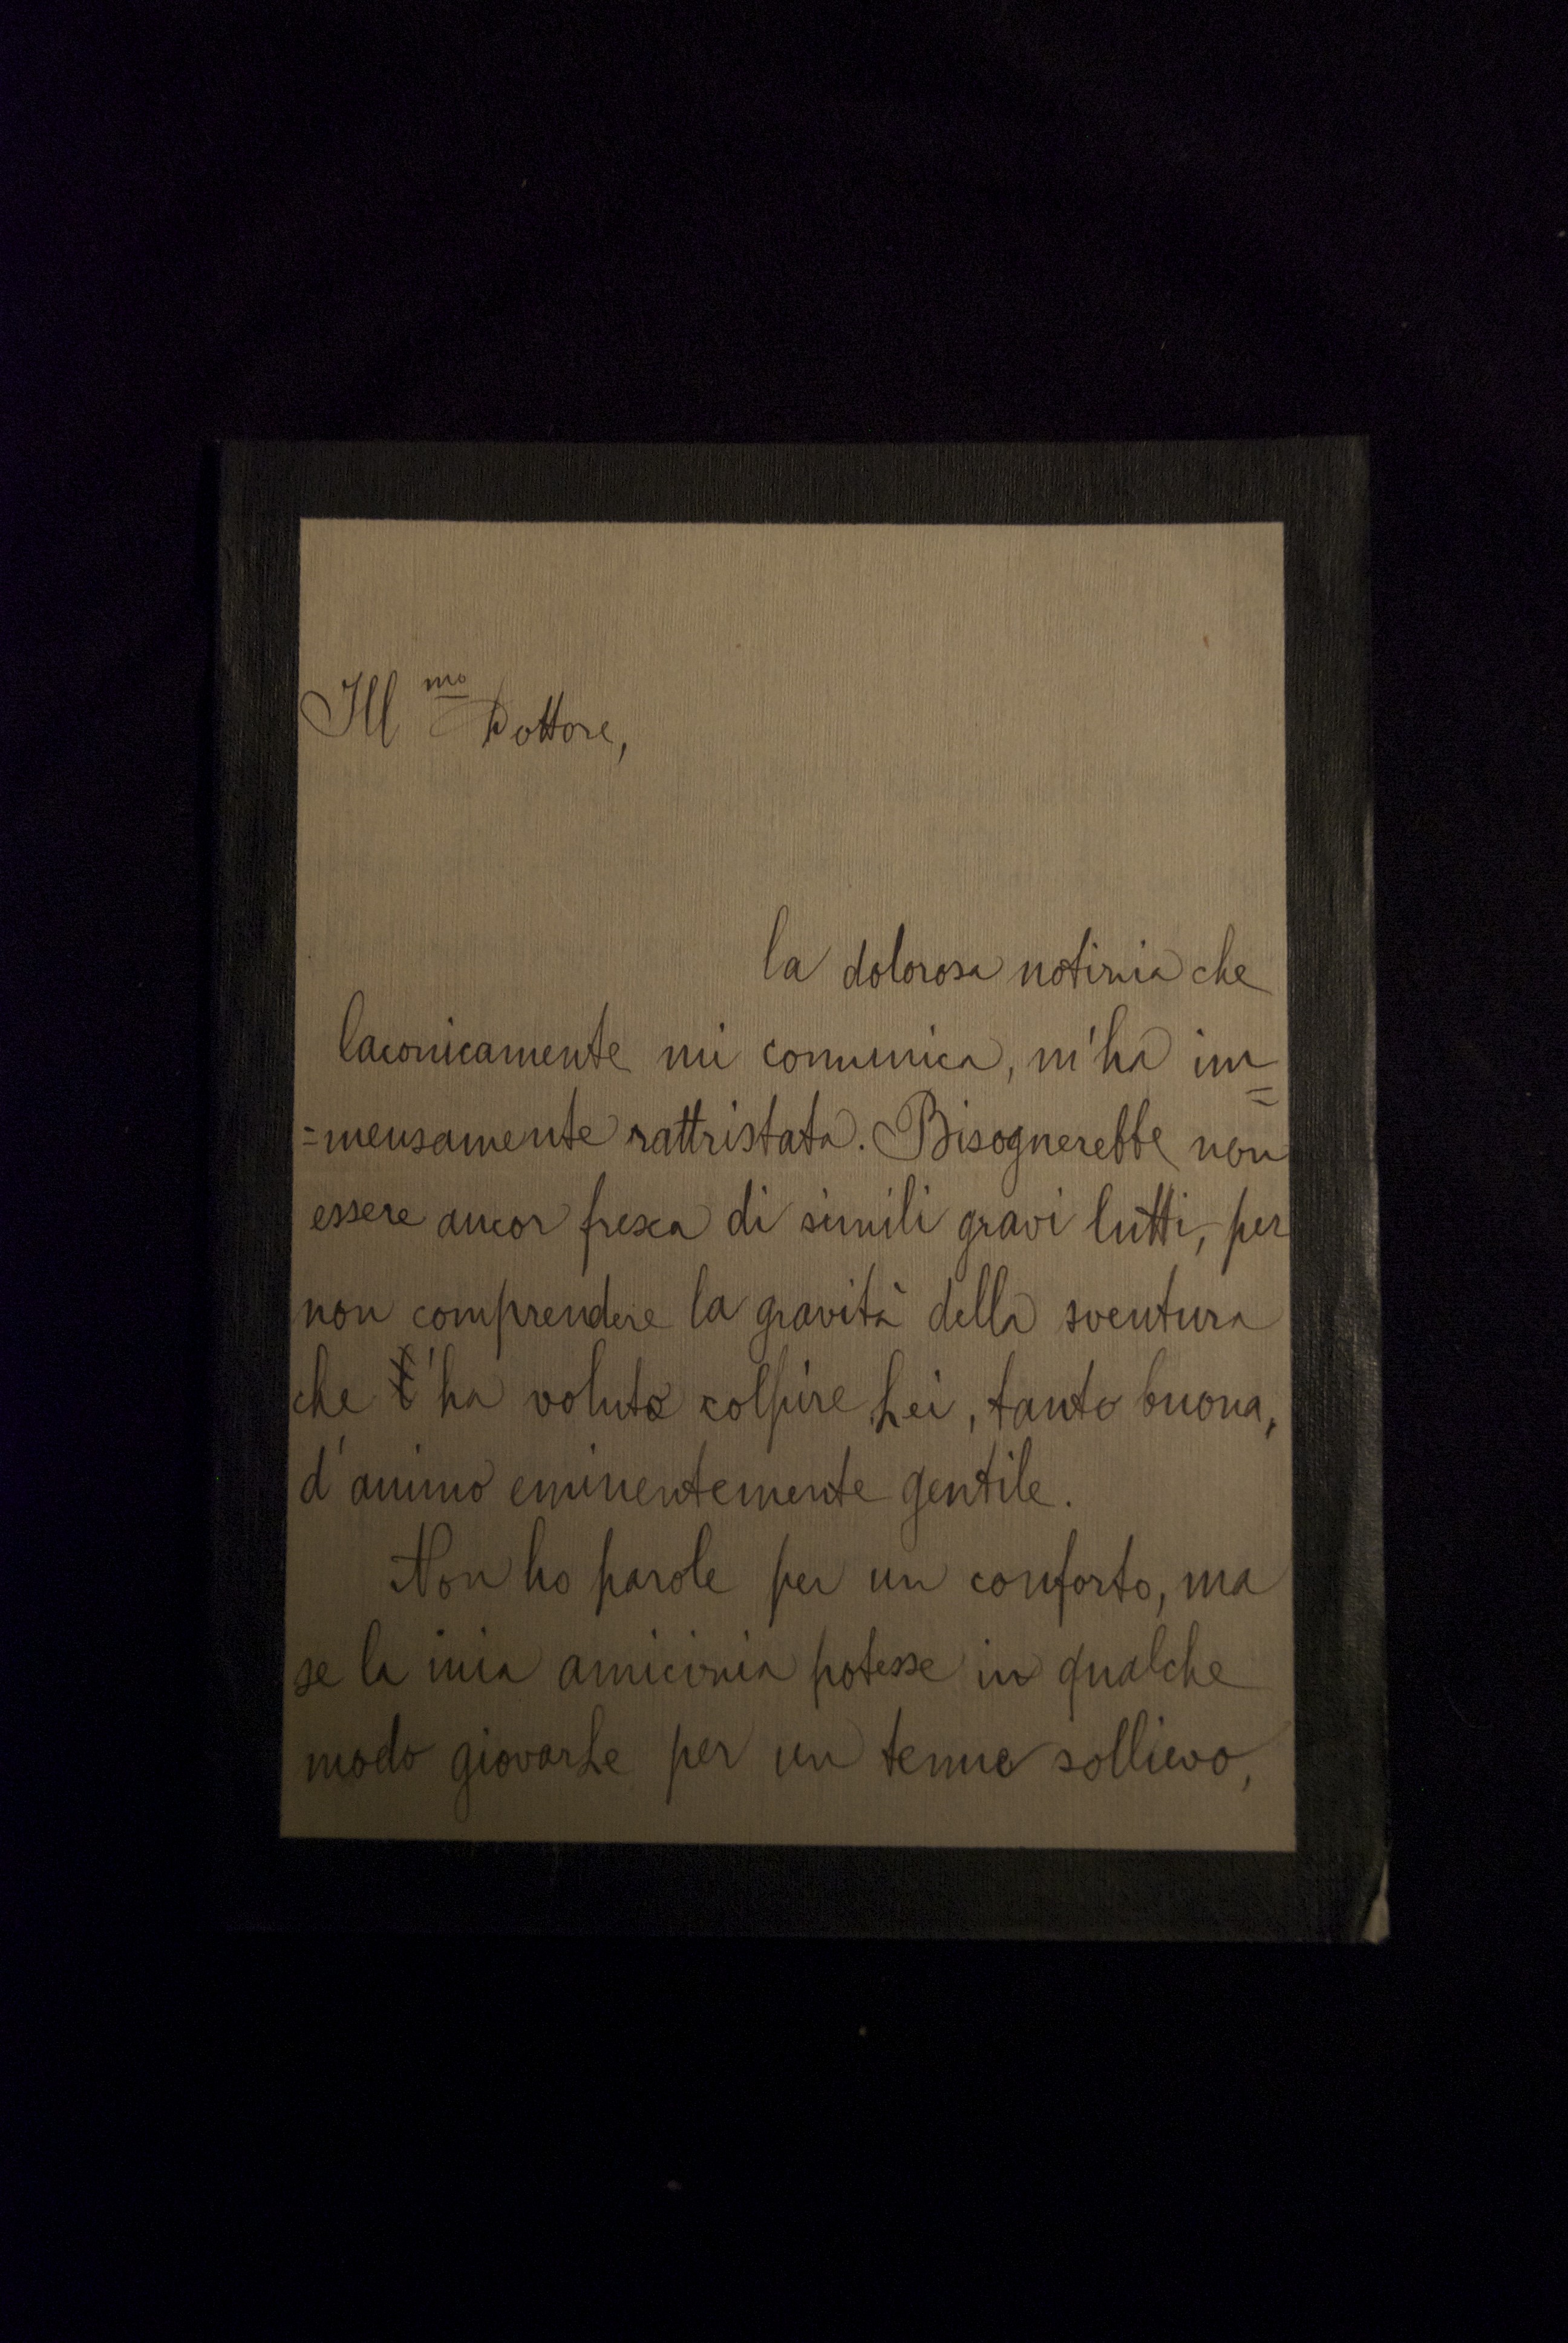 Ill mo Dottore,
la dolorosa notizia che
laconicamente mi comunica, m'ha im=
=mensamente rattristata. Bisognerebbe non
essere ancor fresca di simili gravi lutti, per
non comprendere la gravità della sventura
che l'ha voluto colpire Lei, tanto buona,
d'animo eminentemente gentile.
Non ho parole per un conforto, ma
se la mia amicizia potesse in qualche
modo giovarLe per un tenue sollievo,